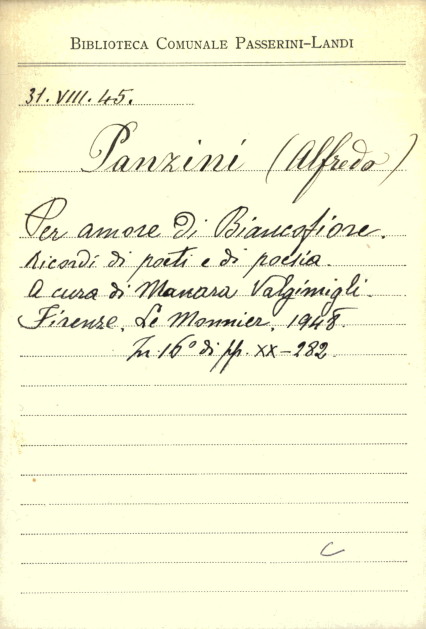 BIBLIOTECA COMUNALE PASSERINI-LANDI
31.VIII.45.
Panzini (Alfredo)
Per amore di Biancofiore.
Ricordi di poeti e di poesia.
A cura di Manara Valgimigli.
Firenze, Le Monnier, 1948.
In 16° di pp. XX-282.
C